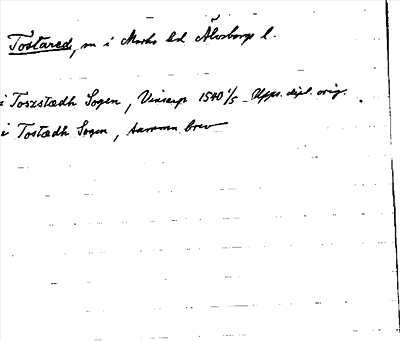 Tostared, sn i Marks hd Älvsborgs l.
i Toszstædh Sogen, 1540 1/5 Opps. dipl. orig.
i Tostædh Sogen, samma brev